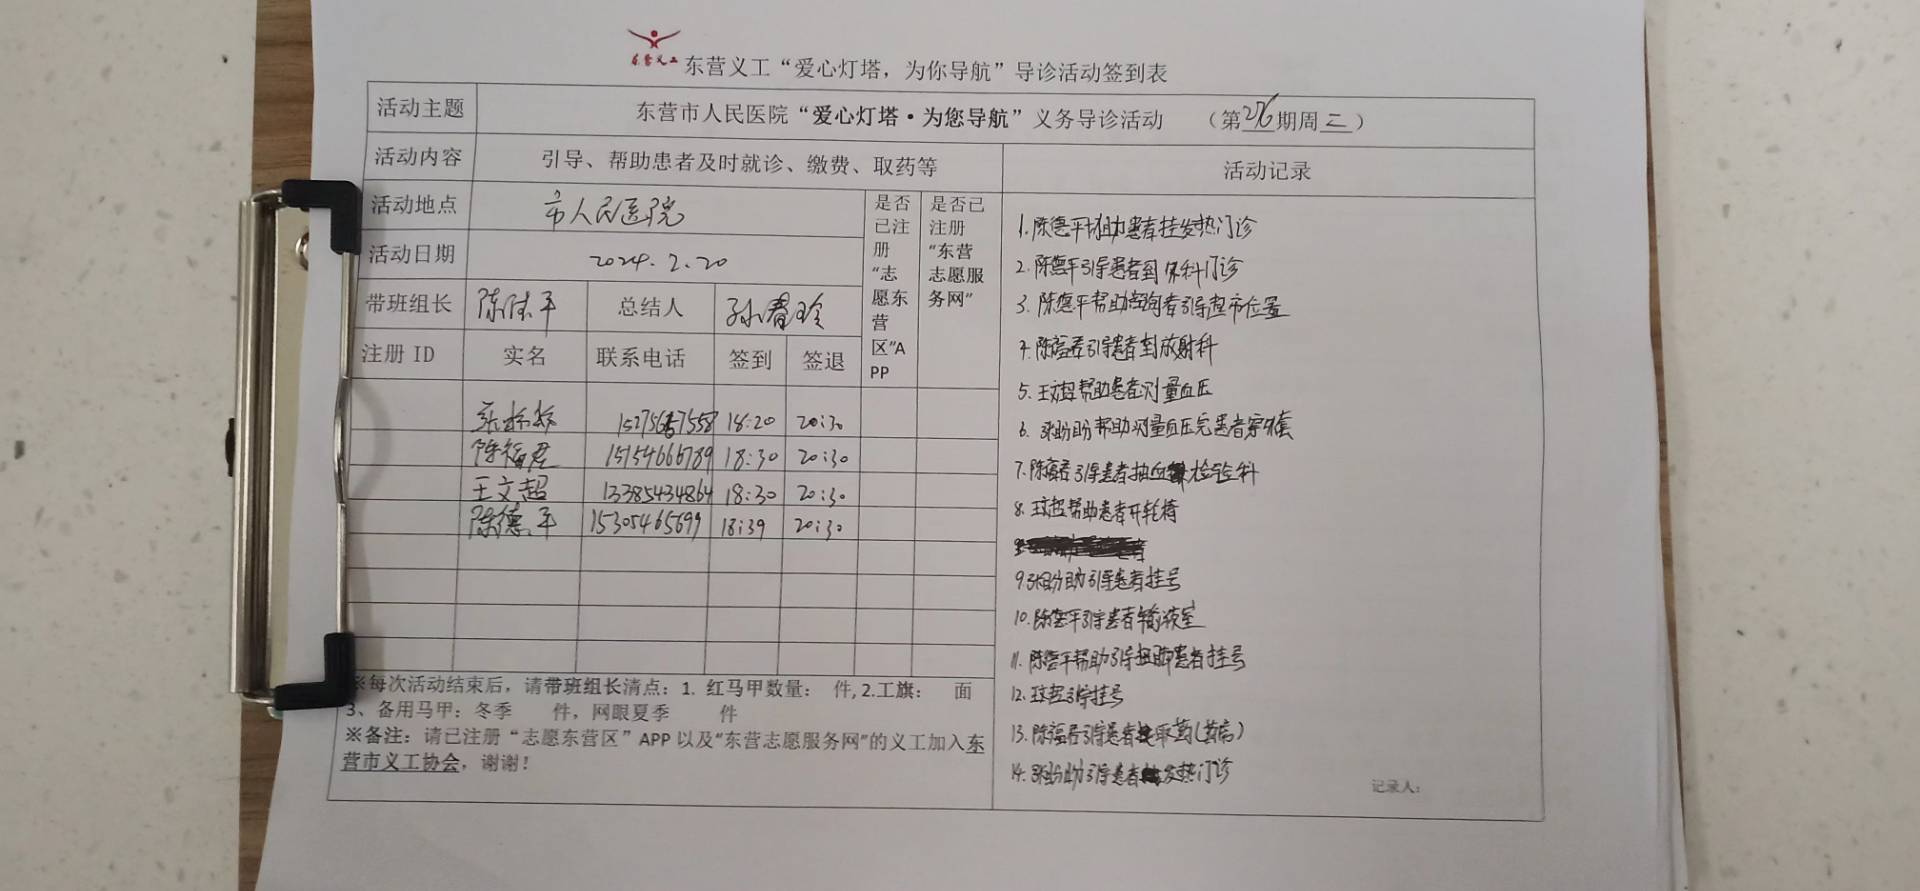 东营义工
东营义工“爱心灯塔，为你导航”导诊活动签到表
活动主题 东营市人民医院“爱心灯塔·为您导航”义务导诊活动 （第276期周二）
活动内容 引导、帮助患者及时就诊、缴费、取药等 活动记录
活动地点 市人民医院
活动日期 2024.2.20
带班组长 陈德平 总结人 孙春玲
注册 ID 实名 联系电话 签到 签退
是否
已注
册
“志
愿东
营
区”A
PP
是否已
注册
“东营
志愿服
务网”
18:20 20:30
陈福君 15154666789 18:30 20:30
王文超 13385434864 18:30 20:30
陈德平 15305465699 18:39 20:30
※每次活动结束后，请带班组长清点：1. 红马甲数量： 件, 2.工旗： 面
3、备用马甲：冬季 件，网眼夏季 件
※备注：请已注册“志愿东营区”APP 以及“东营志愿服务网”的义工加入东
营市义工协会，谢谢！
1.陈德平协助患者挂发热门诊
2.陈德平引导患者到 科门诊
3.陈德平帮助咨询者引导超市位置
4.陈福君引导患者到放射科
5.王文超帮助患者测量血压
6. 帮助测量血压完患者穿外套
7.陈福君引导患者抽血 检验科
8.王文超帮助患者开轮椅
9. 引导患者挂号
10.陈德平引导患者输液室
11.陈德平帮助引导扭脚患者挂号
12.王文超引导挂号
13.陈福君引导患者 取药(药房)
14. 引导患者 发热门诊
记录人：